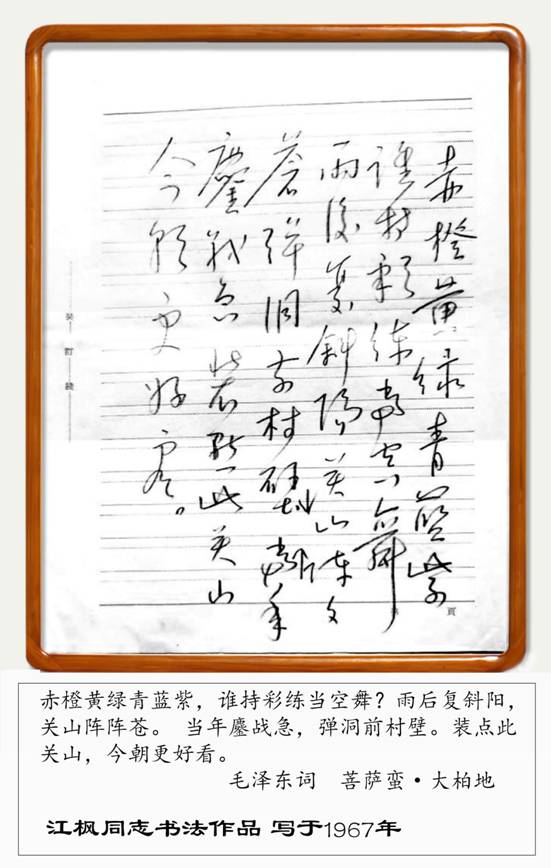 赤橙黄绿青蓝紫
谁持彩练當空舞
雨後复斜陽关山阵々
蒼弹洞前村壁當年
鏖战急装點此关山
今朝更好看。
装訂线
第 頁
赤橙黄绿青蓝紫，谁持彩练当空舞？雨后复斜阳，
关山阵阵苍。 当年鏖战急，弹洞前村壁。装点此
关山，今朝更好看。
毛泽东词 菩萨蛮·大柏地
江枫同志书法作品 写于1967年